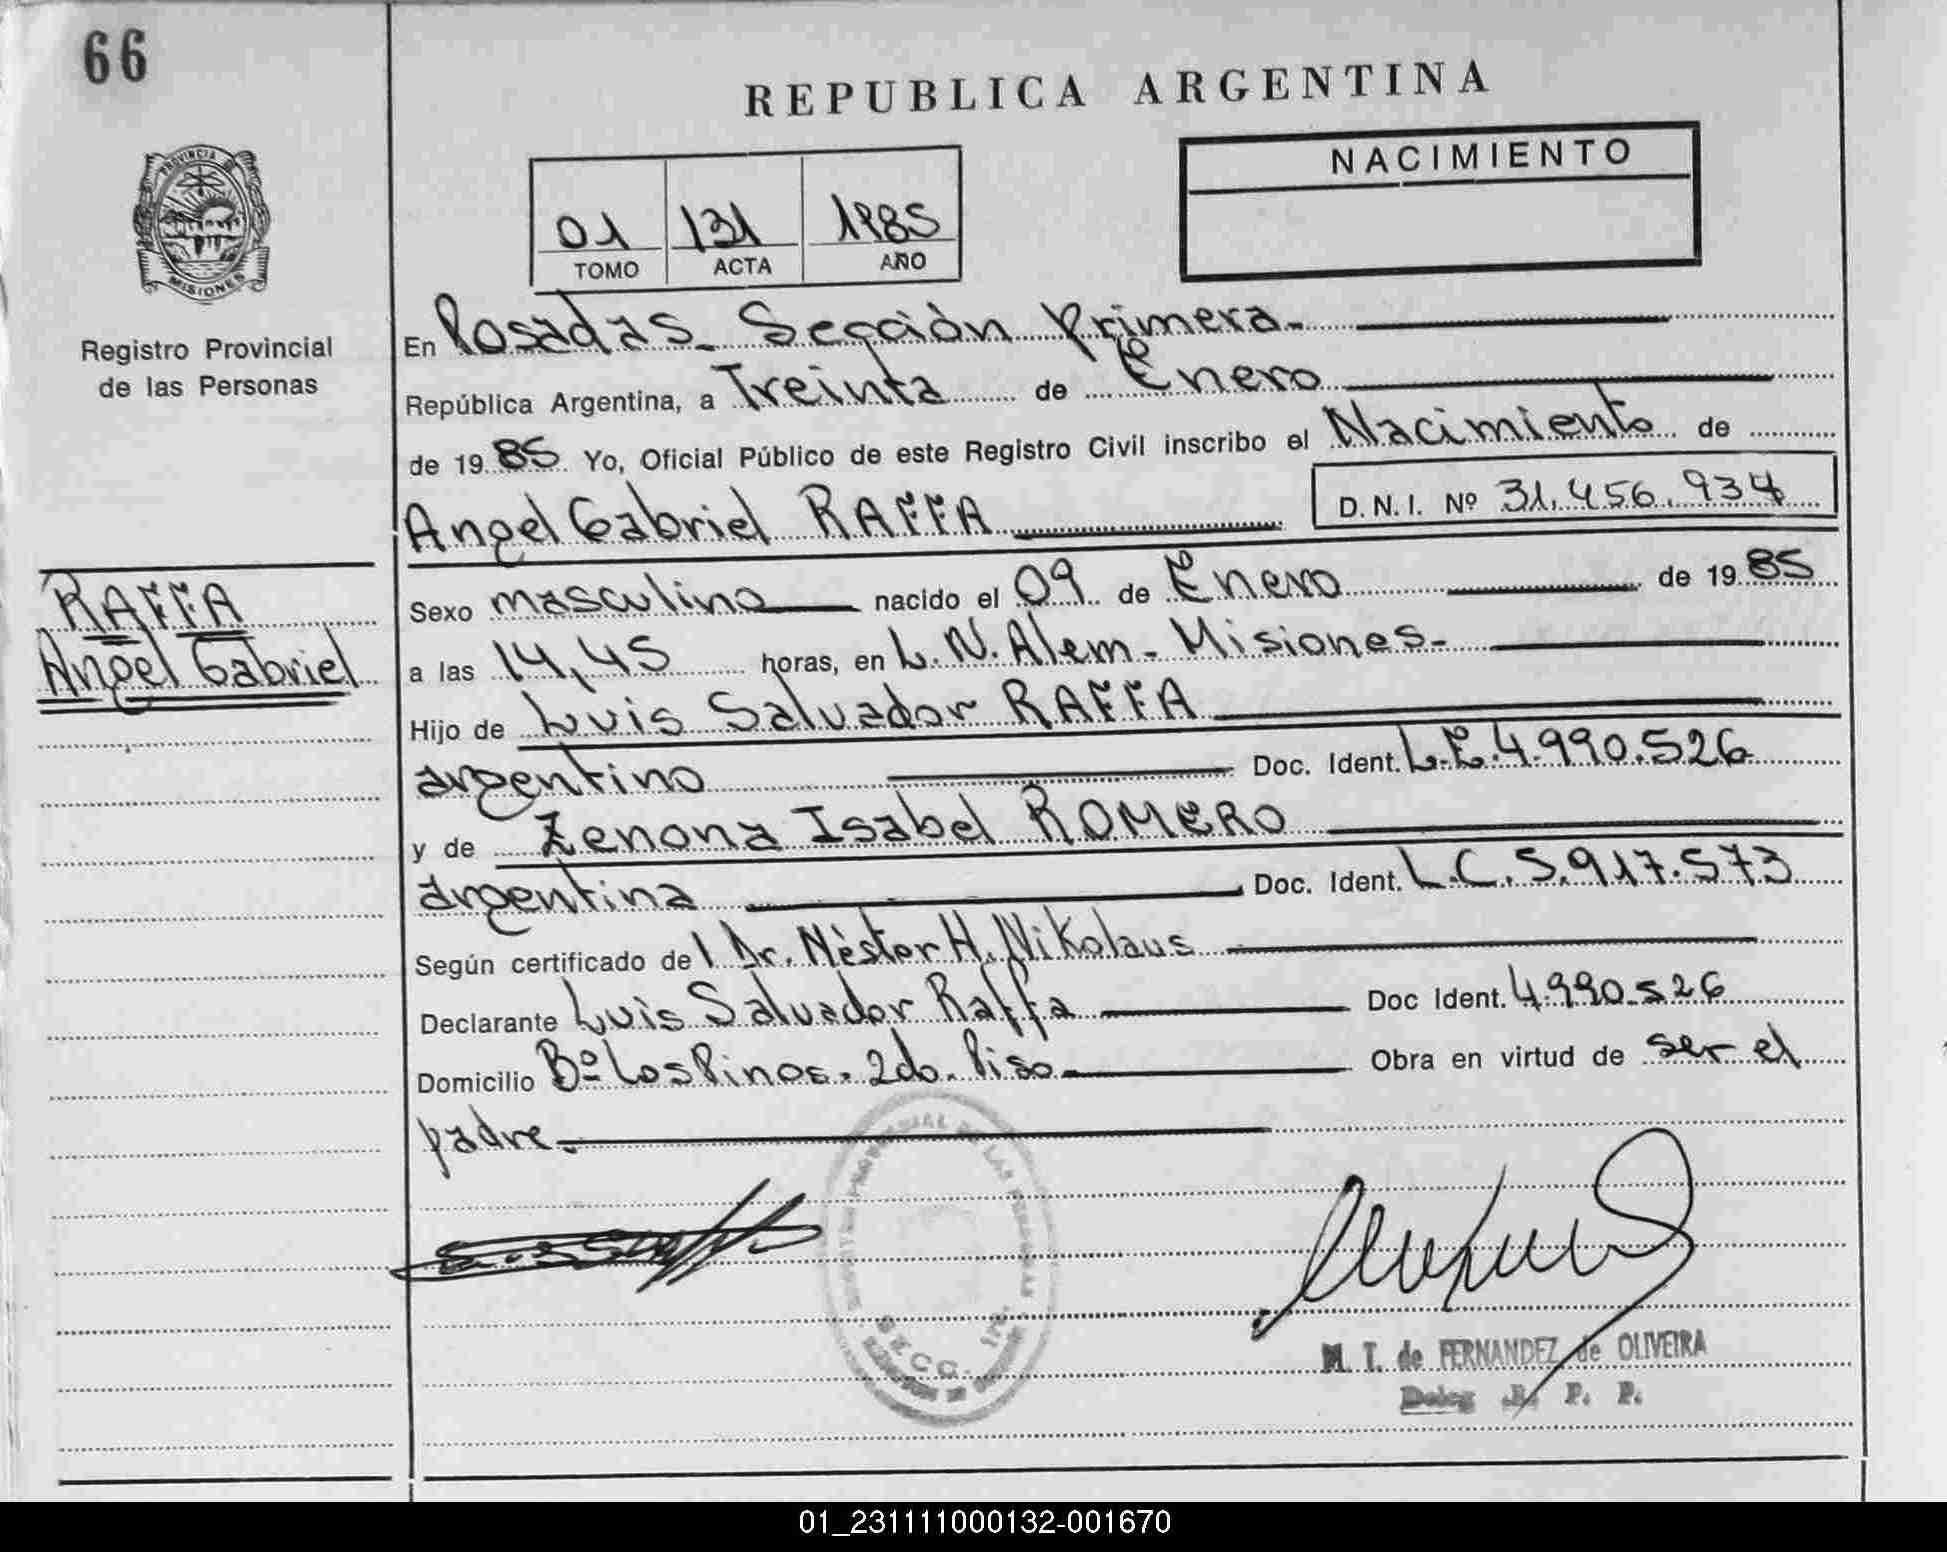 66
REPUBLICA ARGENTINA
PROVINCIA DE
MISIONES
Registro Provincial
de las Personas
01 131 1985
TOMO ACTA AÑO
NACIMIENTO
En Posadas - Sección Primera -
República Argentina, a Treinta de Enero
de 1985 Yo, Oficial Público de este Registro Civil inscribo el Nacimiento de
Angel Gabriel RAFFA D. N. I. Nº 31.456.934
RAFFA
Angel Gabriel
Sexo masculino nacido el 09 de Enero de 1985
a las 14,45 horas, en L. N. Alem - Misiones -
Hijo de Luis Salvador RAFFA
argentino Doc. Ident. L.E. 4.990.526
y de Zenona Isabel ROMERO
argentina Doc. Ident. L.C. 5.917.573
Según certificado del Dr. Nèstor H. Nikolaus
Declarante Luis Salvador Raffa Doc Ident. 4.990.526
Domicilio Bº Los Pinos - 2do. Piso - Obra en virtud de ser el
padre -
SECC. 1ra.
M. T. de FERNANDEZ de OLIVEIRA
Deleg R. P. P.
01_231111000132-001670